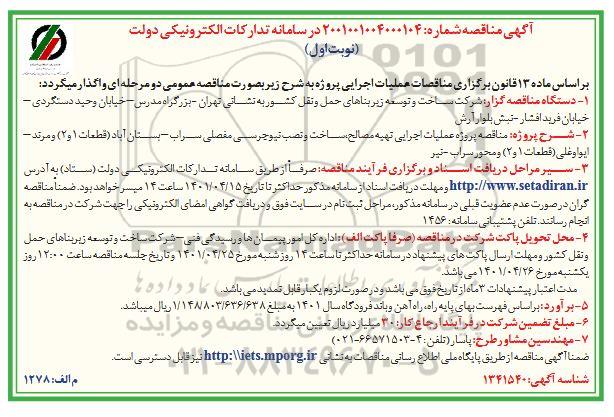 آگهی مناقصه شماره: ۲۰۰۱۰۰۱۰۰۴۰۰۰۱۰۴ در سامانه تدارکات الکترونیکی دولت
(نوبت اول)
براساس ماده ۱۳ قانون برگزاری مناقصات عملیات اجرایی پروژه به شرح زیر بصورت مناقصه عمومی دو مرحله ای واگذار میگردد:
۱- دستگاه مناقصه گزار: شرکت ساخت و توسعه زیربناهای حمل ونقل کشور به نشانی تهران - بزرگراه مدرس - خیابان وحید دستگردی -
خیابان فرید افشار - نبش بلوار آرش
۲- شرح پروژه: مناقصه پروژه عملیات اجرایی تهیه مصالح، ساخت و نصب نیوجرسی مفصلی سراب - بستان آباد (قطعات ۱ و۲) و مرند -
ایواوغلی (قطعات ۱ و ۲) و محور سراب - نیر
۳- سیر مراحل دریافت اسناد و برگزاری فرآیند مناقصه: صرفاً از طریق سامانه تدارکات الکترونیکی دولت (ستاد) به آدرس
http://www.setadiran.ir و مهلت دریافت اسناد از سامانه مذکور حداکثر تا تاریخ ۱۴۰۱/۰۴/۱۵ ساعت ۱۴ میسر خواهد بود. ضمنا مناقصه
گران در صورت عدم عضویت قبلی در سامانه مذکور، مراحل ثبت نام در سایت فوق و دریافت گواهی امضای الکترونیکی را جهت شرکت در مناقصه به
انجام رسانند. تلفن پشتیبانی سامانه: ۱۴۵۶
۴- محل تحویل پاکت شرکت در مناقصه (صرفا پاکت الف): اداره کل امور پیمان ها و رسیدگی فنی - شرکت ساخت و توسعه زیربناهای حمل
ونقل کشور و مهلت ارسال پاکت های پیشنهاد در سامانه حداکثر تا ساعت ۱۴ روز شنبه مورخ ۱۴۰۱/۰۴/۲۵ و تاریخ جلسه مناقصه ساعت ۱۲:۰۰ روز
یکشنبه مورخ ۱۴۰۱/۰۴/۲۶ می باشد.
مدت اعتبار پیشنهادات ۳ ماه از تاریخ فوق می باشد و در صورت لزوم یکبار قابل تمدید می باشد.
۵- برآورد: براساس فهرست بهای پایه راه، راه آهن و باند فرودگاه سال ۱۴۰۱ به مبلغ ۱/۱۴۸/۸۰۳/۶۳۶/۶۳۸ ریال میباشد.
۶- مبلغ تضمین شرکت در فرآیند ارجاع کار: ۳۰ میلیارد ریال تعیین میگردد.
۷- مهندسین مشاور طرح: پاسار (تلفن: ۴-۶۶۵۷۱۵۰۳-۰۲۱)
ضمنا آگهی مناقصه از طریق پایگاه ملی اطلاع رسانی مناقصات به نشانی http://iets.mporg.ir نیز قابل دسترسی است.
شناسه آگهی: ۱۳۴۱۵۴۰
م الف: ۱۲۷۸